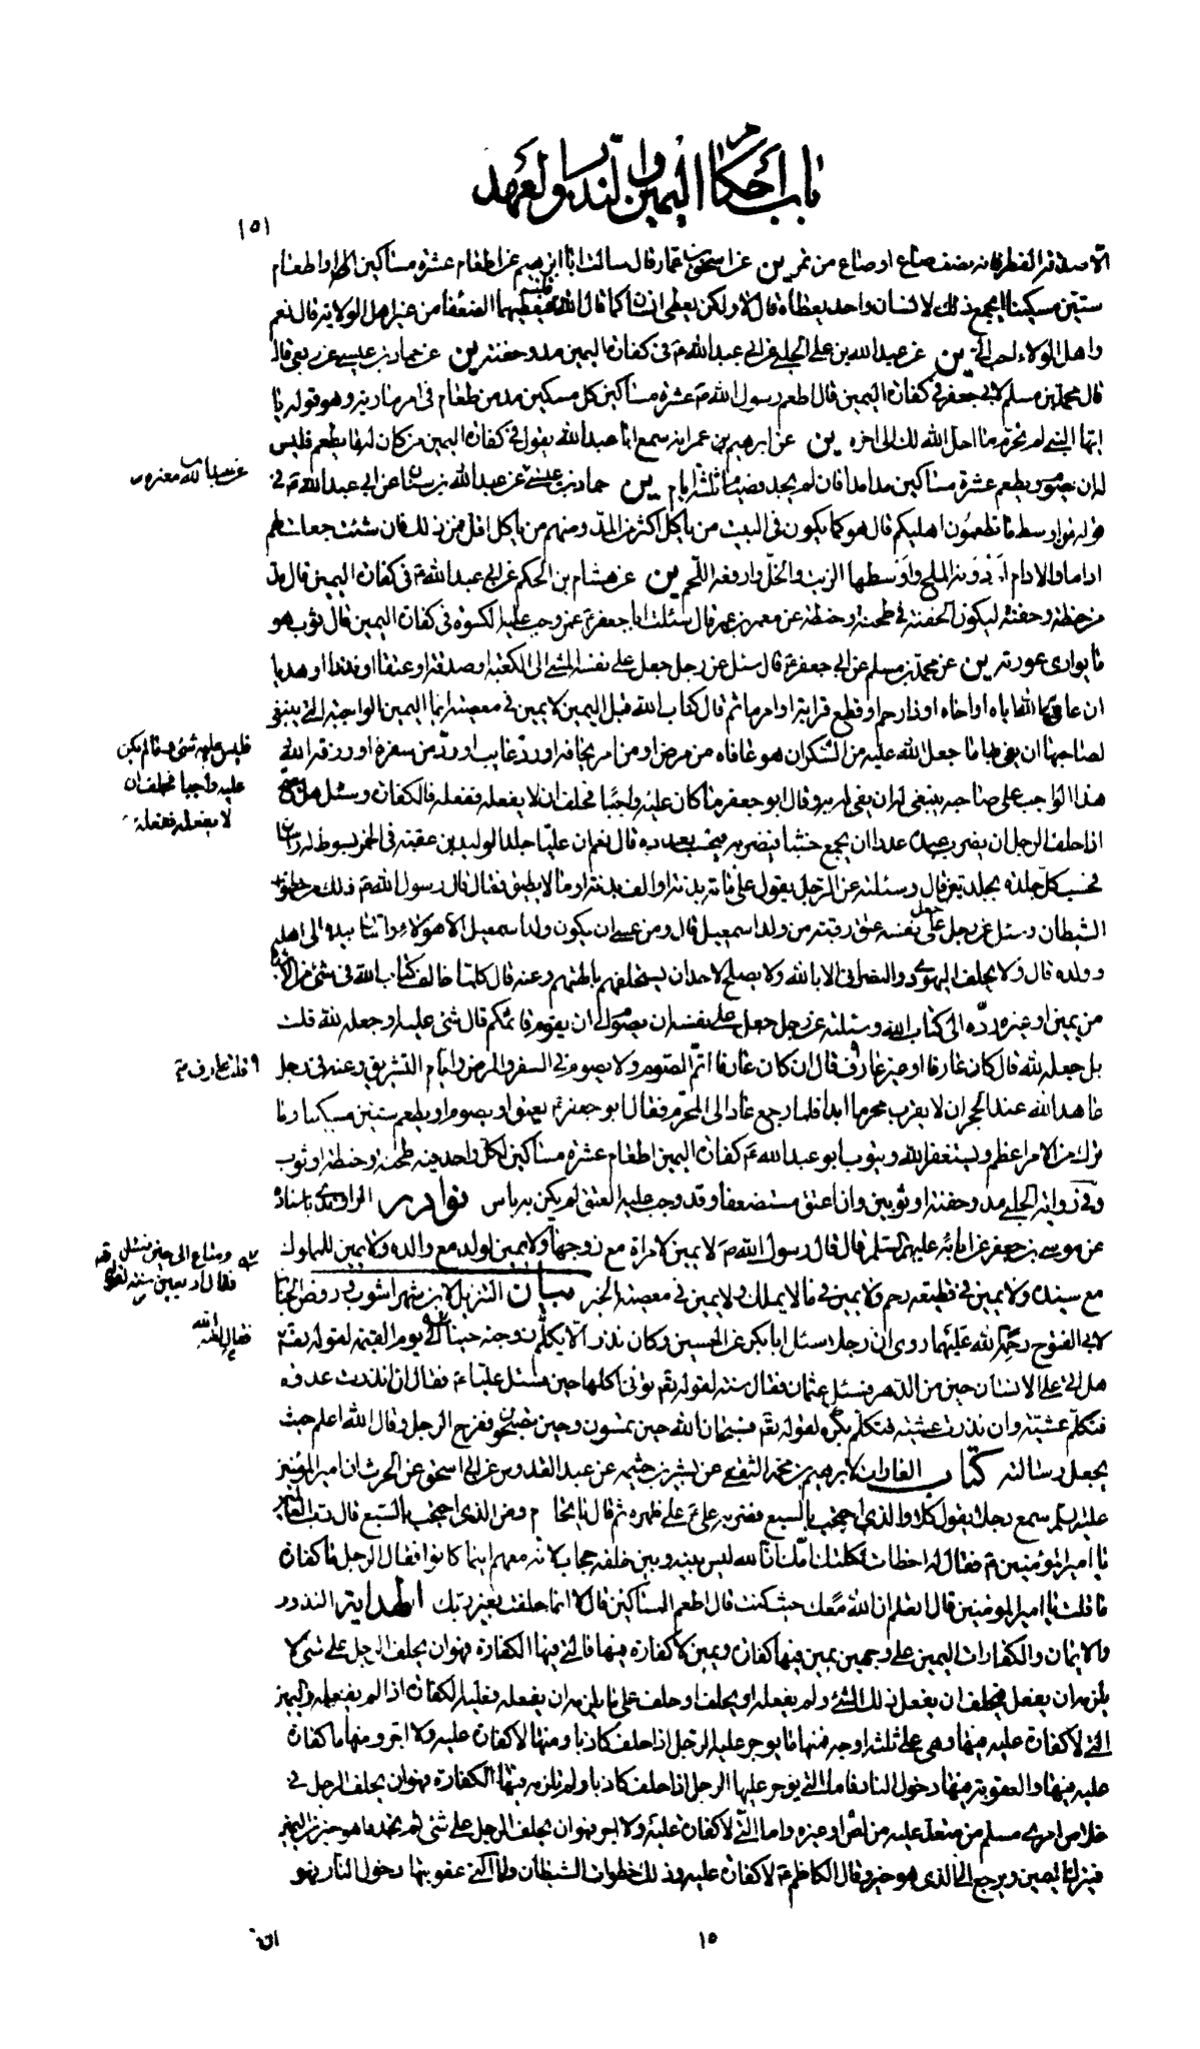 باب أحكام اليمين والنذر والعهد
١٥١
الا صدقة الفطرة فانه نصف صاع او صاع من تمر ين عن اسحق بن عمار قال سالت ابا ابرهيم عن اطعام عشرة مساكين او اطعام
ستين مسكينا ايجمع ذلك لانسان واحد يعطاه قال لا ولكن يعطى انسانا كما قال الله قلت فيعطيها الضعفا من غير اهل الولاية قال نعم
واهل الولاء احب الي ين عن عبيد الله بن علي الحلبي عن ابي عبد الله ع في كفارة اليمين مد وحفنة ين عن حماد بن عيسى عن ربعي قال
قال محمد بن مسلم لابي جعفر في كفارة اليمين قال اطعم رسول الله ص عشرة مساكين كل مسكين مد من طعام في امر مارية وهو قوله يا
ايها النبي لم تحرم ما احل الله لك الى اخره ين عن ابرهيم بن عمر انه سمع ابا عبد الله يقول في كفارة اليمين من كان له ما يطعم فليس
له ان يصوم ويطعم عشرة مساكين مدا مدا فان لم يجد فصيام ثلثة ايام ين حماد بن عيسى عن عبد الله بن سنان عن ابي عبد الله ع في
قوله من اوسط ما تطعمون اهليكم قال هو كما يكون في البيت من ياكل اكثر من المد ومنهم من ياكل اقل من ذلك فان شئت جعلت لهم
اداما والادام ادونه الملح واوسطها الزيت والخل وارفعه اللحم ين عن هشام بن الحكم عن ابي عبد الله ع في كفارة اليمين قال مد
من حنطة وحفنة ليكون الحفنة في طحنه وحنطه عن معمر بن عمر قال سئلت ابا جعفر ع عمن وجب عليه الكسوة في كفارة اليمين قال ثوب هو
ما يوارى عورته ين عن محمد بن مسلم عن ابي جعفر ع قال سئل عن رجل جعل على نفسه المشي الى الكعبة او صدقة او عتقا او نذرا او هديا
ان عافى الله اباه او اخاه او ذا رحم او قطع قرابة او امر ماثم قال كتاب الله قبل اليمين لا يمين في معصية انما اليمين الواجبة التي ينبغي
لصاحبها ان يفي بها ما جعل الله عليه من الشكر ان هو عافاه من مرض او من امر يخافه او رد غايب او رد من سفره او رزقه الله
هذا الواجب على صاحبه ينبغي له ان يفي له به وقال ابو جعفر ما كان عليه واجبا فحلف ان لا يفعله ففعله فالكفارة وسئل هل يصلح
اذا حلف الرجل ان يضرب عبده عددا ان يجمع خشبا فيضربه فيحسب بعدده قال نعم ان عليا جلد الوليد بن عقبة في الخمر بسوط له راسان
فحسب كل جلدة بجلدتين قال وسئلته عن الرجل يقول علي مائة بدنة او الف بدنة او ما لا يطيق فقال قال رسول الله ص ذلك من خطوات
الشيطان وسئل عن رجل جعل على نفسه عتق رقبة من ولد اسمعيل قال ومن عسى ان يكون ولد اسمعيل الا هؤلاء واشار بيده الى اهله
وولده قال ولا يحلف اليهودي والنصراني الا بالله ولا يصلح لاحد ان يستحلفهم بالهتهم وعنه قال كلما خالف كتاب الله في شئ من الاشياء
من يمين او غيره رده الى كتاب الله وسئلته عن رجل جعل على نفسه ان يصوم الى ان يقوم قائمكم قال شئ عليه او جعله لله قلت
بل جعله لله قال كان عارفا او غير عارف قال ان كان عارفا اتم الصوم ولا يصوم في السفر والمرض وايام التشريق وعنه في رجل
عاهد الله عند الحجر ان لا يقرب محرما ابدا فلما رجع عاد الى المحرم فقال ابو جعفر ع يعتق او يصوم او يطعم ستين مسكينا وما
ترك من الامر اعظم ويستغفر الله ويتوب ابو عبد الله ع كفارة اليمين اطعام عشرة مساكين لكل واحد مد فيه طحنه وحنطة او ثوب
وفي رواية الحلبي مد وحفنة او ثوبين وان اعتق مستضعفا وقد وجب عليه العتق لم يكن به باس نوادر الراوندي باسناده
عن موسى بن جعفر عن ابائه عليهم السلم قال قال رسول الله ص لا يمين لامراة مع زوجها ولا يمين لولد مع والده ولا يمين للمملوك
مع سيده ولا يمين في قطيعة رحم ولا يمين في ما لا يملك ولا يمين في معصية الخبر بيان التنزيل لابن شهراشوب في روض الجنان
لابي الفتوح رحمة الله عليهما روى ان رجلا سئل ابا بكر عن الحين وكان نذر الا يكلم زوجته حينا فقال الى يوم القيمة لقوله تعالى
هل اتى على الانسان حين من الدهر فسئل عثمان فقال سنة لقوله تعالى تؤتى اكلها حين فسئل عليا ع فقال ان نذرت غدوة
فتكلم عشية وان نذرت عشية فتكلم بكرة لقوله تعالى فسبحان الله حين تمسون وحين تصبحون ففرح الرجل وقال الله اعلم حيث
يجعل رسالته كتاب الغارات لابرهيم بن محمد الثقفي عن بشير بن خيثمة عن عبد القدوس عن ابي اسحق عن الحرث ان امير المؤمنين
عليه السلم سمع رجلا يقول كلا والذي احتجب بالسبع فضربه علي ع على ظهره ثم قال يا لحام ومن الذي احتجب بالسبع قال رب العالمين
يا امير المؤمنين ع فقال له اخطات ثكلتك امك ان الله ليس بينه وبين خلقه حجاب لانه معهم اينما كانوا فقال الرجل ما كفارة
ما قلت يا امير المومنين قال ان تعلم ان الله معك حيث كنت قال اطعم المساكين قال لا انما حلفت بغير ربك الهداية النذور
والايمان والكفارات اليمين على وجهين يمين فيها كفارة ويمين لا كفارة فيها فالتي فيها الكفارة فهو ان يحلف الرجل على شئ لا
يلزمه ان يفعل فيحلف ان يفعل ذلك الشئ ولم يفعله او يحلف على ما يلزمه ان يفعله فعليه الكفارة اذا لم يفعله واليمين
التي لا كفارة عليه فيها وهي على ثلثة اوجه فمنها ما يوجر عليه الرجل اذا حلف كاذبا ومنها لا كفارة عليه ولا اجر ومنها ما كفارة
عليه فيها والعقوبة فيها دخول النار فاما التي يوجر عليها الرجل اذا حلف كاذبا ولم تلزمه فيها الكفارة فهو ان يحلف الرجل في
خلاص امرئ مسلم من متعد عليه من لص او غيره واما التي لا كفارة عليه ولا اجر فهو ان يحلف الرجل على شئ ثم يجد ما هو خير من اليمين
فيترك اليمين ويرجع الى الذي هو خير وقال الكاظم ع لا كفارة عليه وذلك خطوات الشيطان واما التي عقوبتها دخول النار فهو
فليس عليه فيه شئ وما لم يكن
عليه واجبا فحلف ان
لا يفعله ففعله
١٥
ان